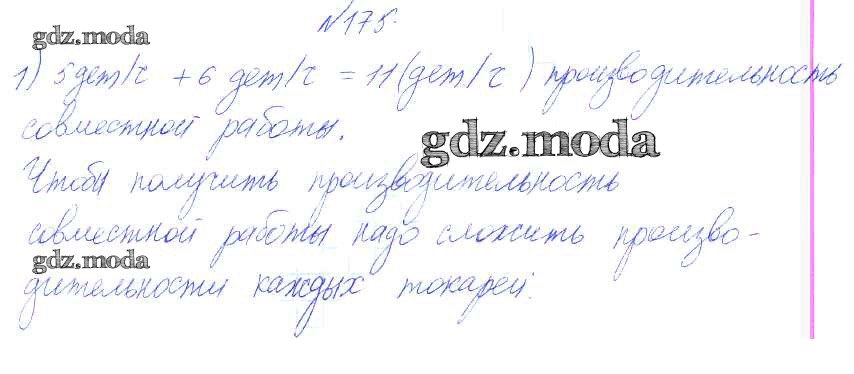 №175.
gdz.moda
1) 5 дет/ч + 6 дет/ч = 11 (дет/ч) производительность
совместной работы.
gdz.moda
Чтоби получить производительность
совместной работы надо сложить произво-
gdz.moda
дительности каждых токарей.